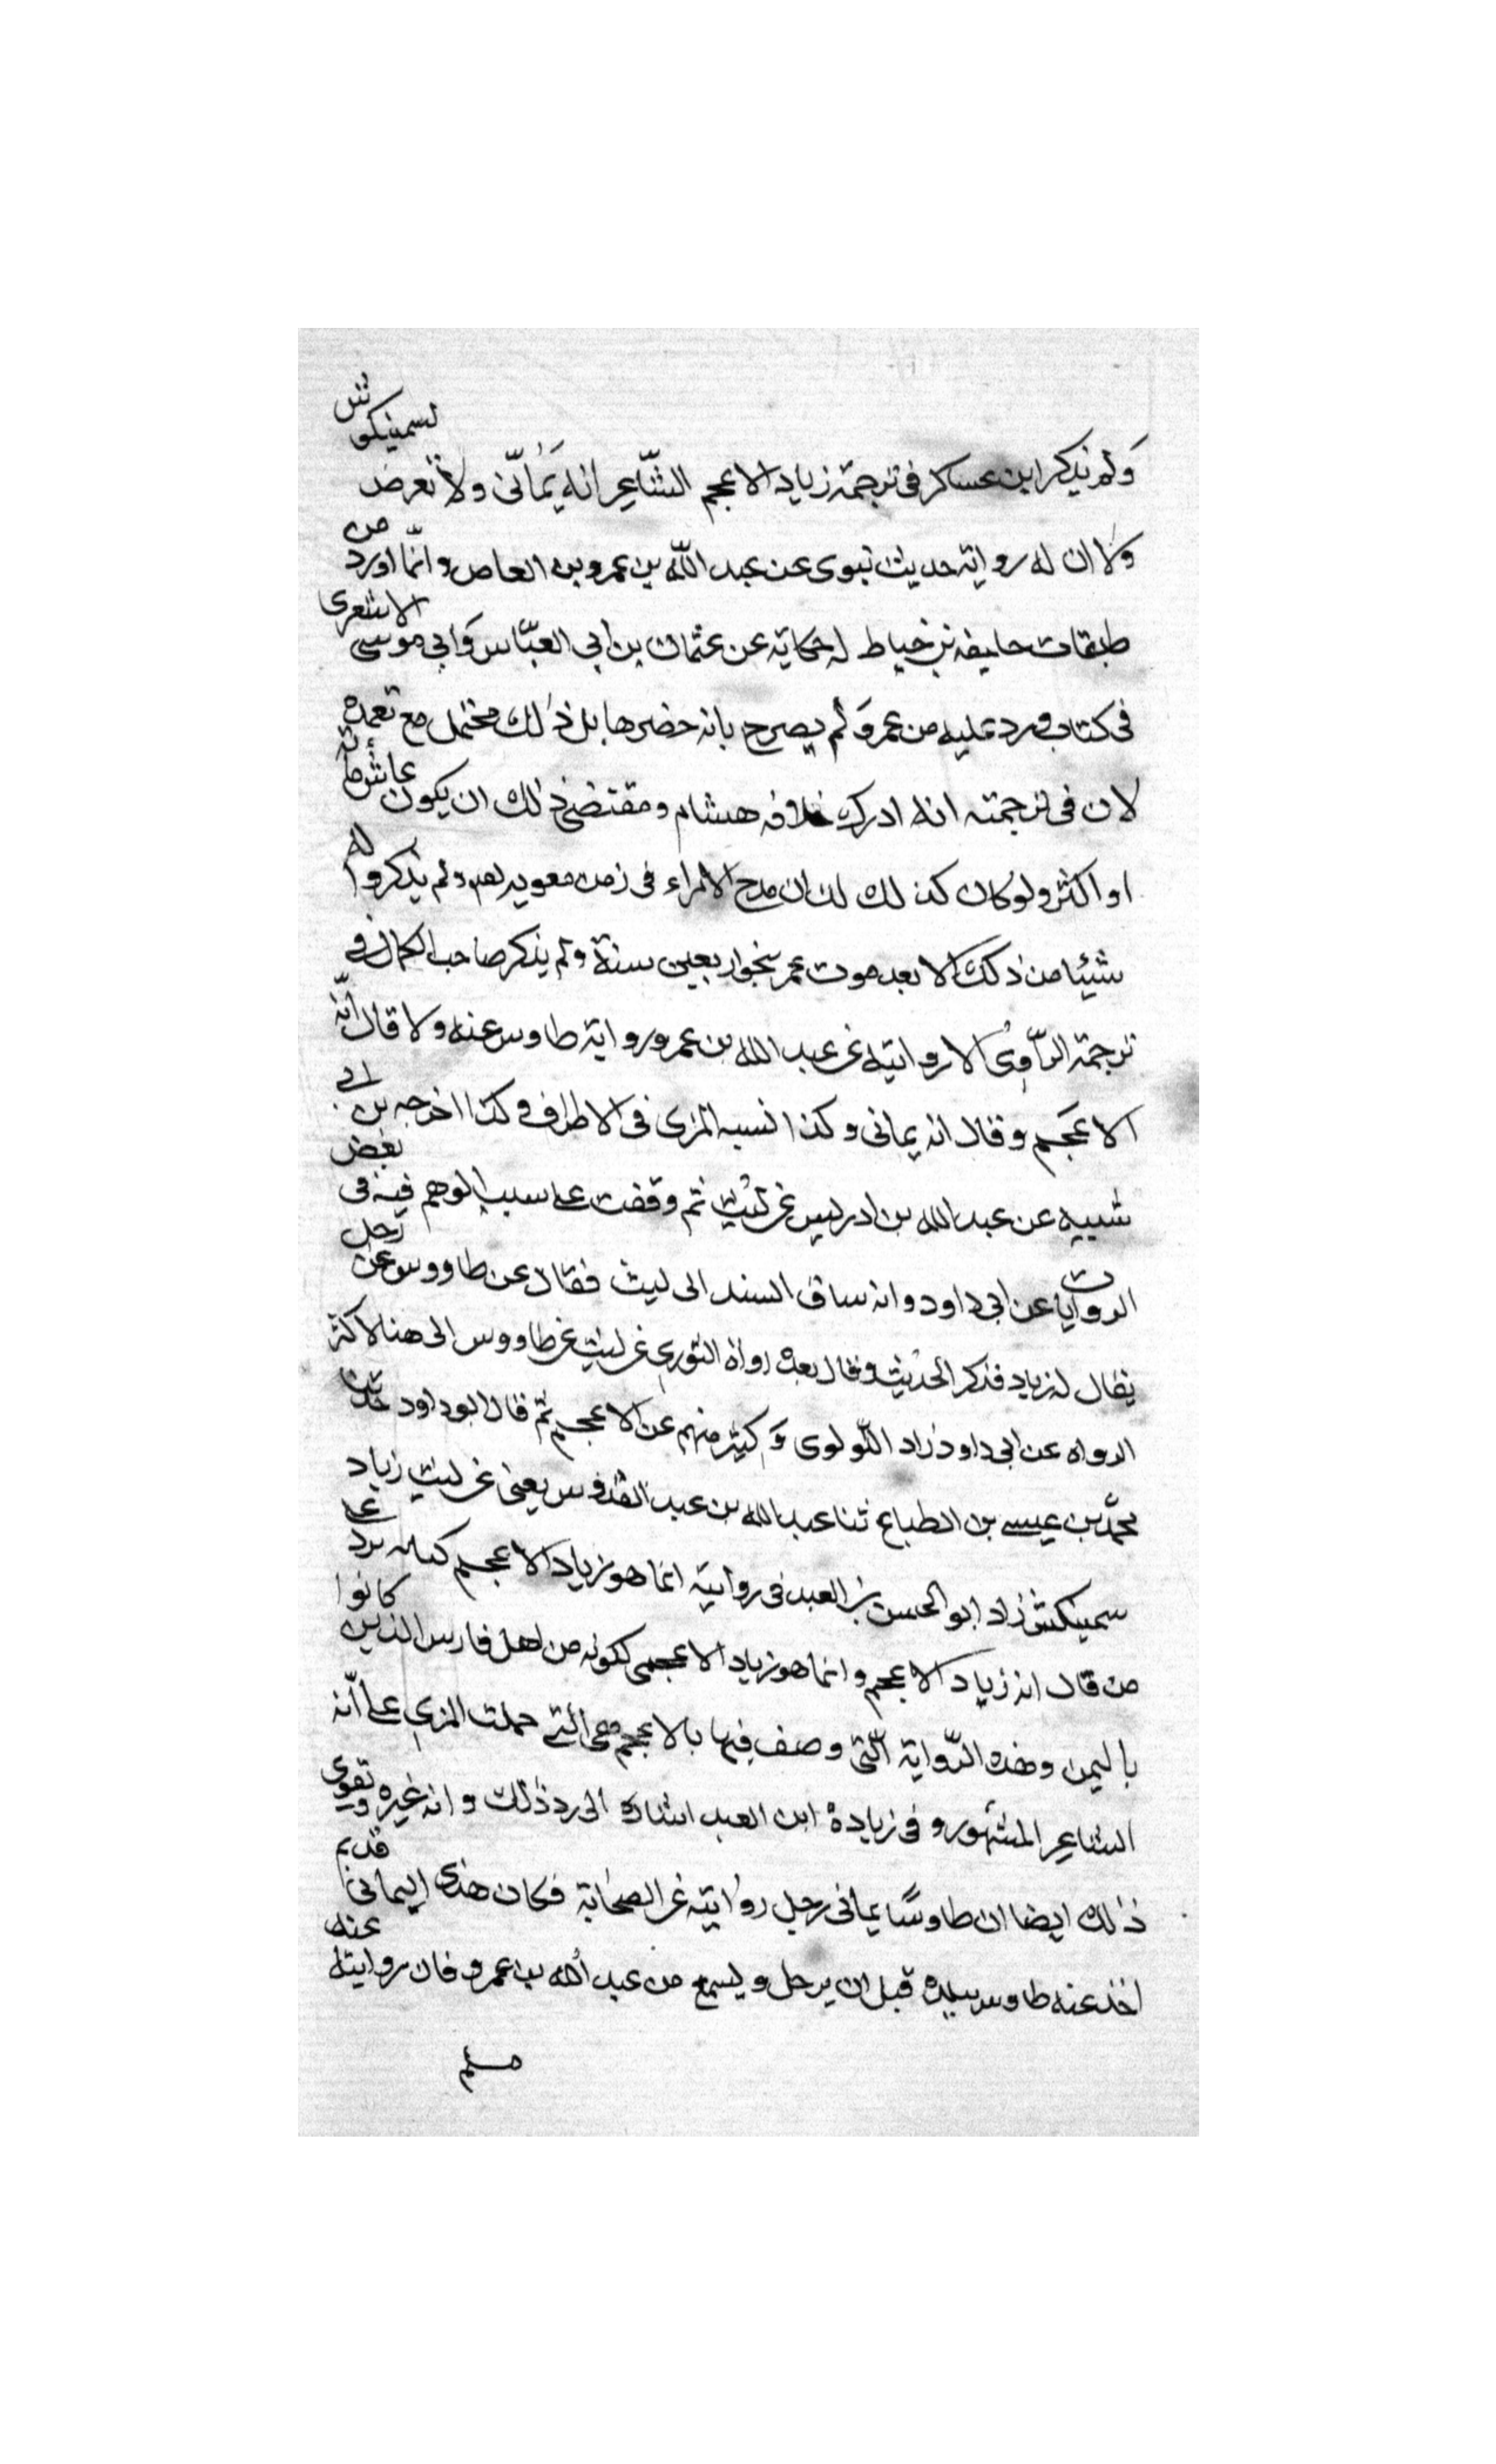 ولم يذكر ابن عساكر في ترجمة زياد الاعجم الشاعر انه يمانى ولا تعرض لسمينكوش
ولا ان له رواية حديث نبوى عن عبد الله بن عمرو بن العاص وانما اورد من
طبقات خليفه بن خياط له حكاية عن عثمان بن ابي العباس وابي موسى الاشعرى
فى كتاب ورد عليه من عمر ولم يصرح بانه حضرها بل ذلك محتمل مع تعمده
لان في ترجمته انه ادرك خلافه هشام ومقتضى ذلك ان يكون عاش مائة
او اكثر ولو كان كذلك لكان مدح الامراء فى زمن معويه بعد ولم يذكروا له
شيئا من ذلك الا بعد موت عمر بنحو اربعين سنة ولم يذكر صاحب الكمال في
ترجمة الراوى الا روايته عن عبد الله بن عمرو رواية طاوس عنه ولا قال انه
الاعجم وقال انه يمانى وكذا نسبه المزى فى الاطراف وكذا اخرجه بن ابى
شيبه عن عبد الله بن ادريس عن ليث ثم وقفت على سبب الوهم فيه فى بعض
الروايات عن ابى داود وانه ساق السند الى ليث فقال عن طاووس عن رجل
يقال له زياد فذكر الحديث وقال بعده رواه الثوري عن ليث عن طاووس الى هنا لاكثر
الرواه عن ابى داود زاد اللولوى وكثير منهم عن الاعجم ثم قال ابو داود حدثنا
محمد بن عيسى بن الطباع ثنا عبد الله بن عبد القدوس يعنى عن ليث زياد
سمينكش زاد ابو الحسن بن العبد فى روايته انما هو زياد الاعجم كانه يرد على
من قال انه زياد الاعجم وانما هو زياد الاعجمى لكونه من اهل فارس الذين كانوا
باليمن وهذه الرواية التى وصف فيها بالاعجم هى التى حملت المزي على انه
الشاعر المشهور وفى زيادة ابن العبد اشاره الى رد ذلك وانه غيره ويقوى
ذلك ايضا ان طاوسا يمانى رجل روايته عن الصحابة فكان هذا اليمانى قديم
اخذ عنه طاوس ببلده قبل ان يرحل ويسمع من عبد الله بن عمرو فان روايته عنه
مسلم